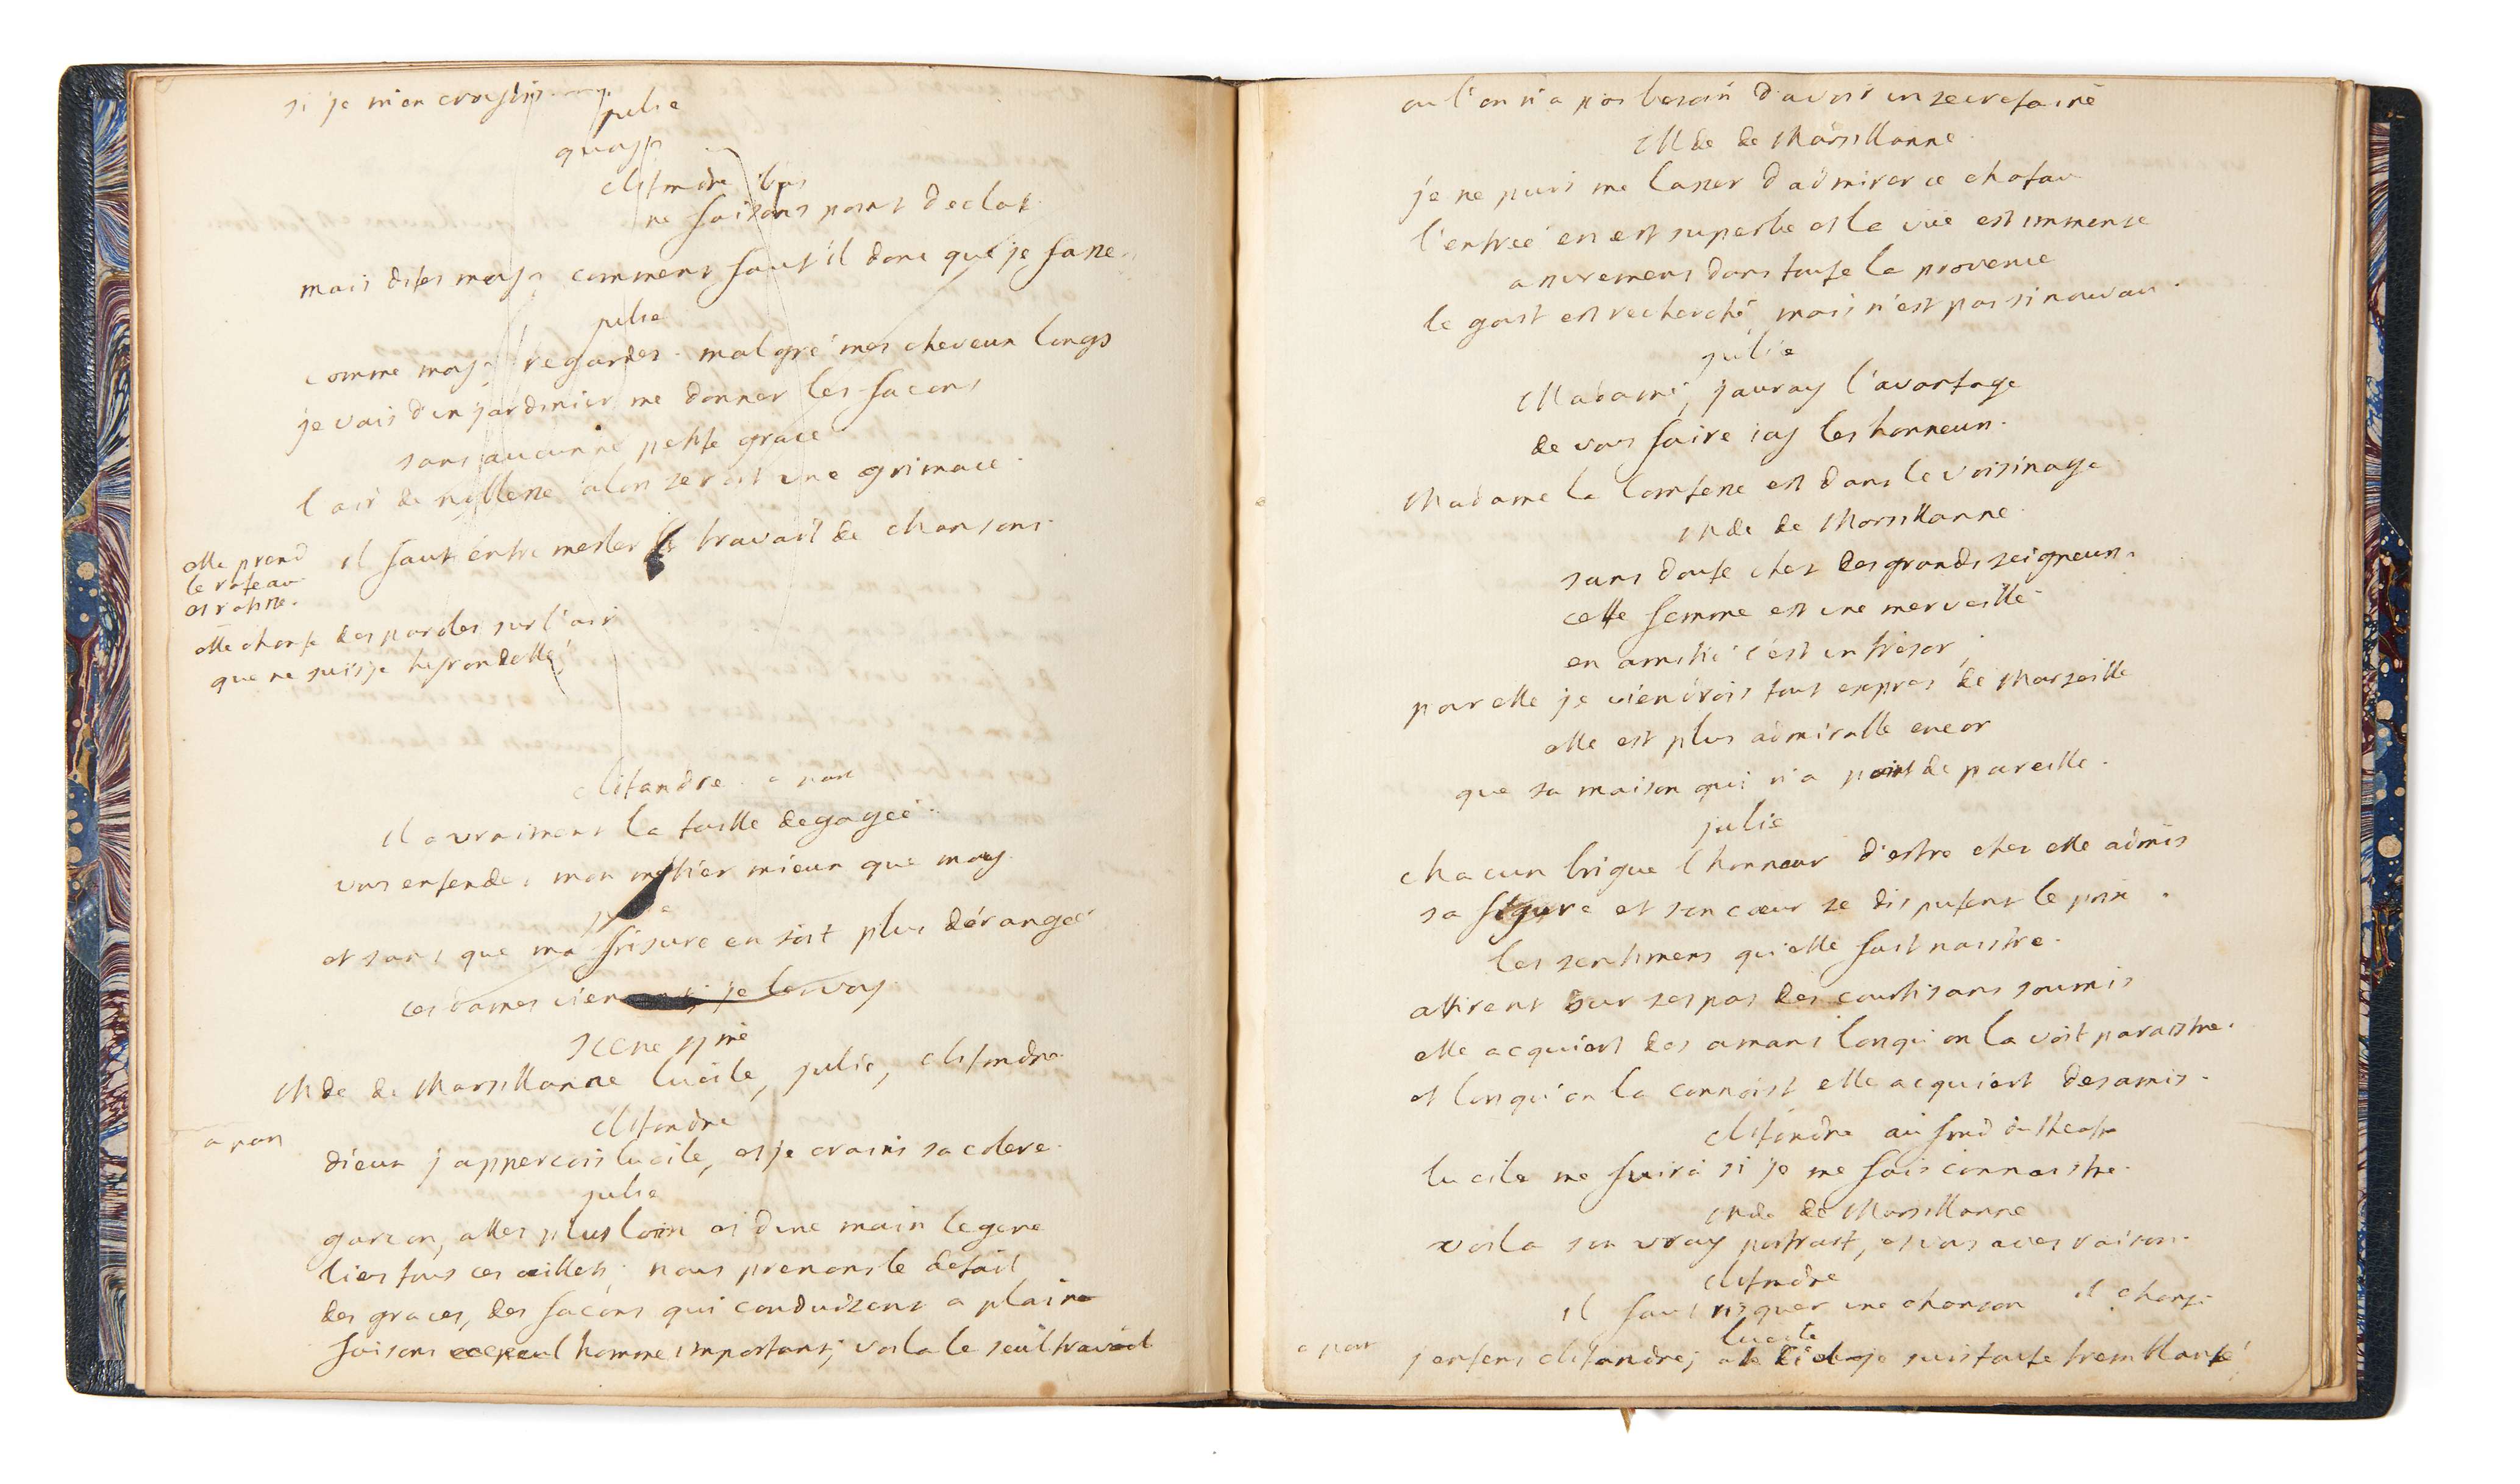 si je m'en croyois
julie
quoy
clitandre bas
ne faisons point d'eclat
mais dites moy comment faut'il donc que je fasse
julie
comme moy regardes. malgré mes cheveux longs
je vais d'un jardinier me donner les facons
sans aucune petite grace
l'air de noblesse alon seroit une grimace.
il faut entremesler le travail de chansons.
elle prend
le rateau
et ratisse.
elle chante des paroles sur l'air
que ne suis je hirondelle
clitandre a part
il a vraiment la taille degagée
vous entendes mon metier mieux que moy
julie
et sans que ma frisure en soit plus dérangée
ces dames viennent je les voy
scene
Mde de Marsillanne lucile, julie, clitandre
clitandre
a part
dieux j'appercois lucile, et je crains sa colere.
julie
garcon, alles plus loin et d'une main legere
lies tous ces oeillets; nous prenons le detail
des graces, des facons qui conduisent a plaire
faisons homme important; voila le seul travail
ou l'on n'a pas besoin d'avoir un secretaire
Mde de Marsillanne
je ne puis me lasser d'admirer ce chatau
l'entreé en est superbe et la vüe est immense
assurement dans toute la provence
le goust est recherché, mais n'est pas si nouvau.
julie
Madame, j'auray l'avantage
de vous faire icy les honneurs.
Madame la Comtesse est dans le voisinage
Mde de Marsillanne
sans doute ches des grands seigneurs.
cette femme est une merveille
en amitié c'est un trésor;
pour elle je viendrois tout expres de Marseille
elle est plus admirable encor
que sa maison qui n'a point de pareille.
julie
chacun brigue l'honneur d'estre ches elle admis
sa figure et son coeur se disputent le prix.
les sentimens qu'elle fait naistre.
attirent sur ses pas des courtisans soumis
elle acquiert des amans lorsqu'on la voit paraistre.
et lorsqu'on la connoist elle acquiert des amis.
clitandre au fond du theatre
lucile me fuira si je me fais connaistre.
Mde de Marsillanne
voila son vray portrait, et vous aves raison.
clitandre
il faut risquer une chanson il chante
lucile
a part
j'entens clitandre; je suis toute tremblante!